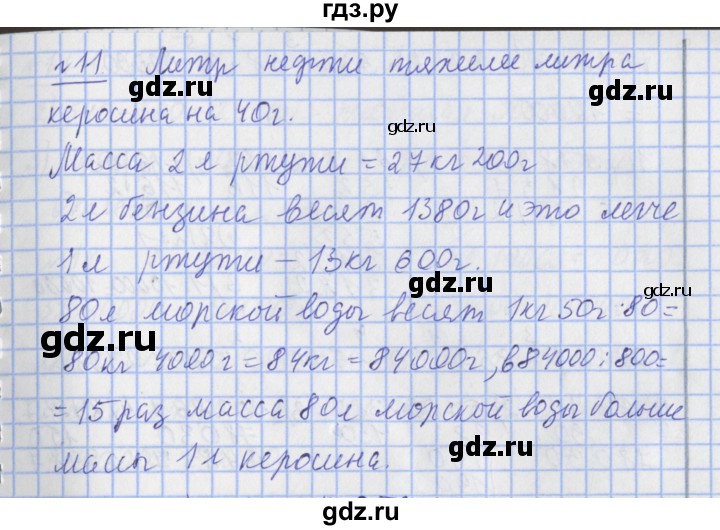 гдз.ру
№11 Литр нефти тяжелее литра
gdz.ru gdz.ru
керосина на 40г.
gdz.ru
Масса 2 л ртути = 27кг 200г
2л бензина весят 1380г и это легче
1л ртути – 13кг 600г.
gdz.ru gdz.ru
80л морской воды весят 1кг 50г·80=
gdz.ru
80кг 4000г = 84кг = 84000г, в 84000:800=
= 15 раз масса 80л морской воды больше
gdz.ru gdz.ru
массы 1л керосина.
gdz.ru